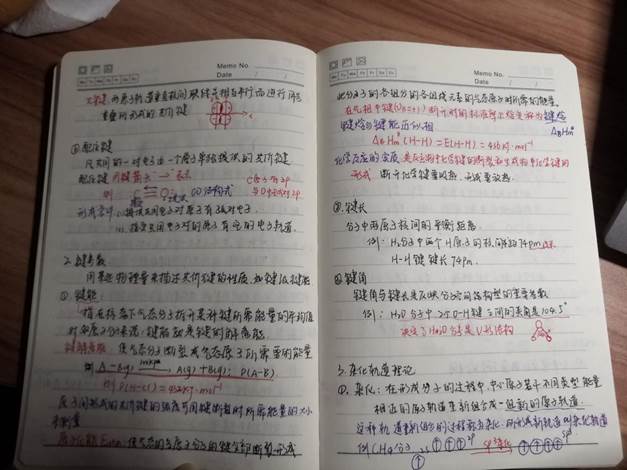 Memo No.
Mo Tu We Th Fr Sa Su
Date / /
π键:两原子轨道垂直核间联线并相互平行而进行同
重叠所形成的共价键
③配位键
共用的一对电子由一个原子单独提供的共价键
配位键用箭头 → 表示
例 C O CO结构式
形成条件
有孤对电子
接受共用电子对的原子有空的电子轨道.
2.键参数
用某些物理量来描述共价键的性质,如键长键能
①键能:
指在标准下气态分子拆开某种键所需能量的平均值
对双原子分子来说,键能就是键的解离能
键解离能 使气态分子断裂成气态原子所需要的能量
例 A-B(g) → A(g)+B(g); D(A-B)
例 D(H-Cl)=432kJ·mol⁻¹
原子间形成的共价键的强度可用键断裂时所需能量的大小
来衡量
原子化能Eatm:使气态的多原子分子的键全部断裂形成
Memo No.
Mo Tu We Th Fr Sa Su
Date / /
此分子的各组分的各组成元素的气态原子时所需的能量.
键焓与键能近似相
ΔBHm(H-H)=E(H-H)=436kJ·mol⁻¹
化学反应的实质,是反应物中化学键的断裂和生成物中化学键的
形成 断开化学键要吸热,形成要放热.
②键长
分子中两原子核间的平衡距离
例:H₂分子中两个H原子的核间距为74pm
H-H键键长74pm.
③键角
键角与键长是反映分子空间结构型的重要参数
例:H₂O分子中2个O-H键之间的夹角是104.5°
决定了H₂O分子是V形结构
3.杂化轨道理论
①杂化:在形成分子的过程中,中心原子若干不同类型能量
相近的原子轨道重新组合成一组新的原子轨道.
这种轨道重新组合的过程称为杂化,所形成新轨道叫杂化轨道
例CH₄分子 sp³杂化 sp³